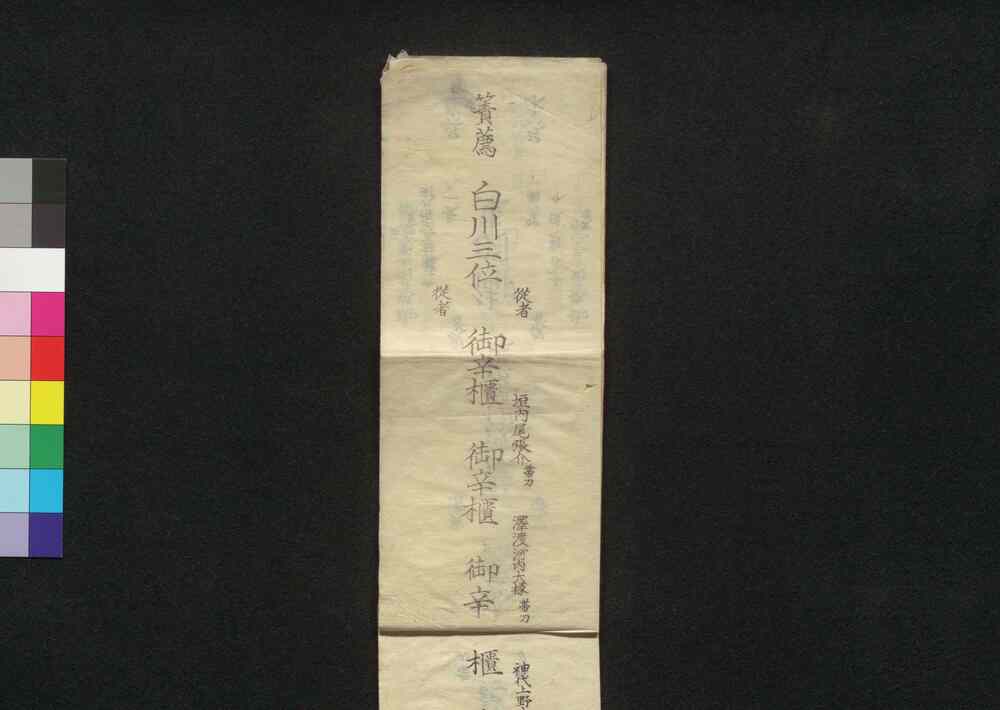 從者　垣内尾張介帯刀　澤渡河内大掾帯刀　神代上野
簀薦　白川三位　御辛櫃　御辛櫃　御辛櫃
從者